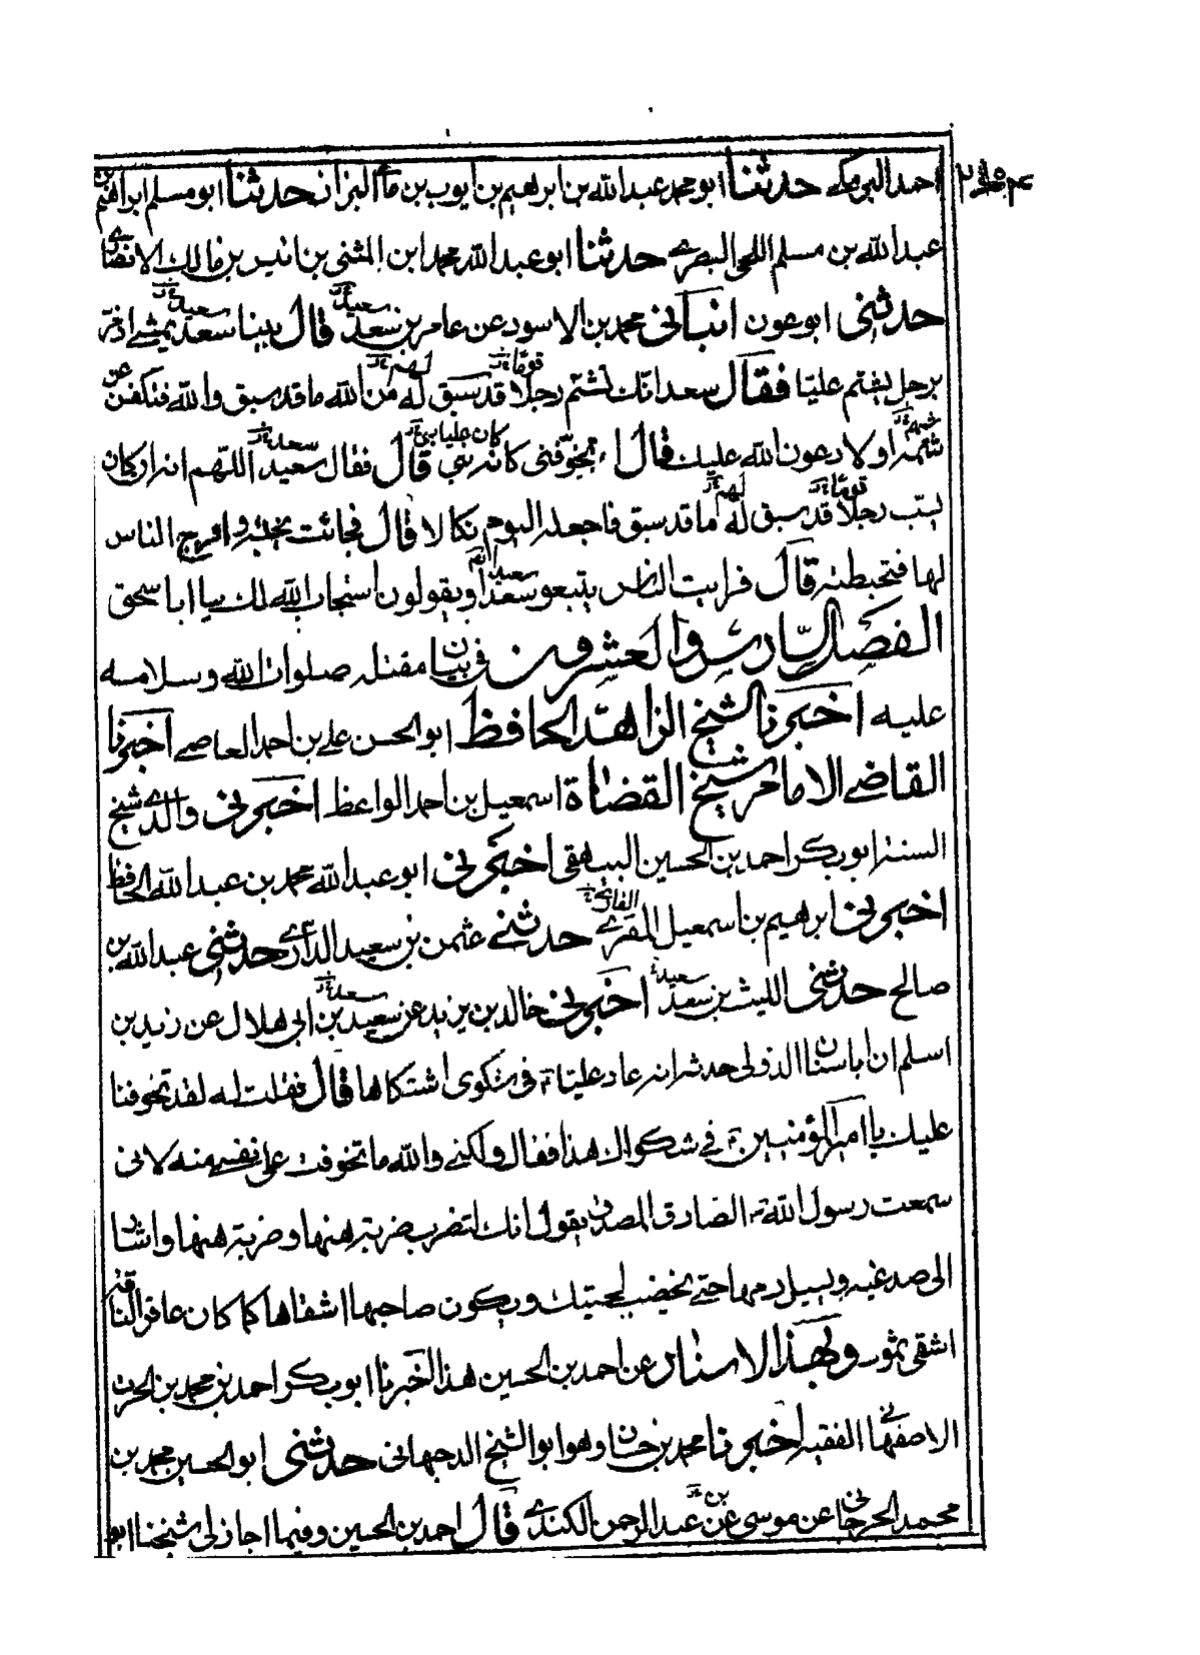 احمد البرمكي حدثنا ابو محمد عبدالله بن ابرهيم بن ايوب بن ماتا البزاز حدثنا ابو مسلم ابراهيم بن
عبدالله بن مسلم اللجى البصرے حدثنا ابو عبدالله محمد ابن المثنى بن انيس بن مالك الانصارے
حدثنى ابو عون انبانى محمد بن الاسود عن عامر بن سعد قال بينا سعد يمشے اذ مر
برجل يشتم عليا فقال سعد انك لتشتم رجلا قد سبق له من الله ما قد سبق والله فتكفن عن
شتمه او لادعون الله عليك قال ء تخوفنى كانه نبى قال فقال سعيد اللهم ان كان
يسب رجلا قد سبق له ما قد سبق فاجعله اليوم نكالا قال فجائت بختيه وافرج الناس
لها فتخبطته قال فرايت الناس يتبعو سعدا ويقولون استجاب الله لك يا ابا سحق
الفصل السادس والعشرون فى بيان مقتله صلوات الله وسلامه
عليه اخبرنا الشيخ الزاهد الحافظ ابو الحسن على بن احمد العاصمے اخبرنا
القاضے الامام شيخ القضاة اسمعيل بن احمد الواعظ اخبرنى والدے شيخ
السنة ابو بكر احمد بن الحسين البيهقى اخبرنى ابو عبدالله محمد بن عبدالله الحافظ
اخبرنى ابرهيم بن اسمعيل المقرے حدثنے عثمن بن سعيد الدارے حدثنى عبدالله بن
صالح حدثنى الليث بن سعد اخبرنى خالد بن يزيد عن سعيد بن ابى هلال عن زيد بن
اسلم ان ابا سنان الدولى حدثه انه عاد عليا فى شكوى اشتكاها قال فقلت له لقد تخوفنا
عليك يا امير المؤمنين فے شكواك هذا فقال ولكنے والله ما تخوفت على نفسے منه لانى
سمعت رسول الله الصادق المصدق يقول انك لتضرب ضربة هنها وضربة هنها واشار
الى صدغيه ويسيل دمها حتے يخضب لحيتك ويكون صاحبها اشقاها كما كان عاقر الناقة
اشقى ثمود وبهذا الاسناد عن احمد بن الحسين هذا اخبرنا ابو بكر احمد بن محمد بن الحرث
الاصفهانى الفقيه اخبرنا محمد بن حان وهو ابو الشيخ الدجهانى حدثنى ابو الحسين محمد بن
محمد الجرجانى عن موسى عن عبد الرحمن الكندے قال احمد بن الحسين وفيما اجاز لى شيخنا ابو